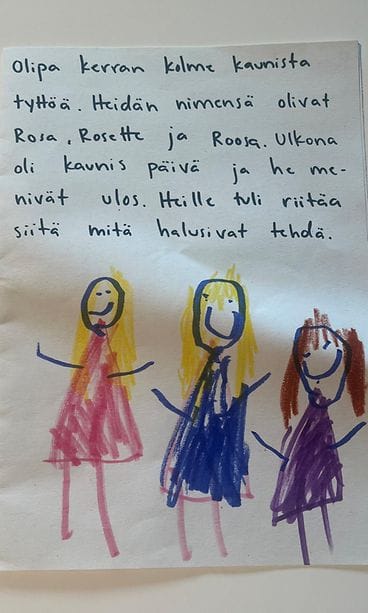 Olipa kerran kolme kaunista
tyttöä. Heidän nimensä olivat
Rosa, Rosette ja Roosa. Ulkona
oli kaunis päivä ja he me-
nivät ulos. Heille tuli riitaa
siitä mitä halusivat tehdä.